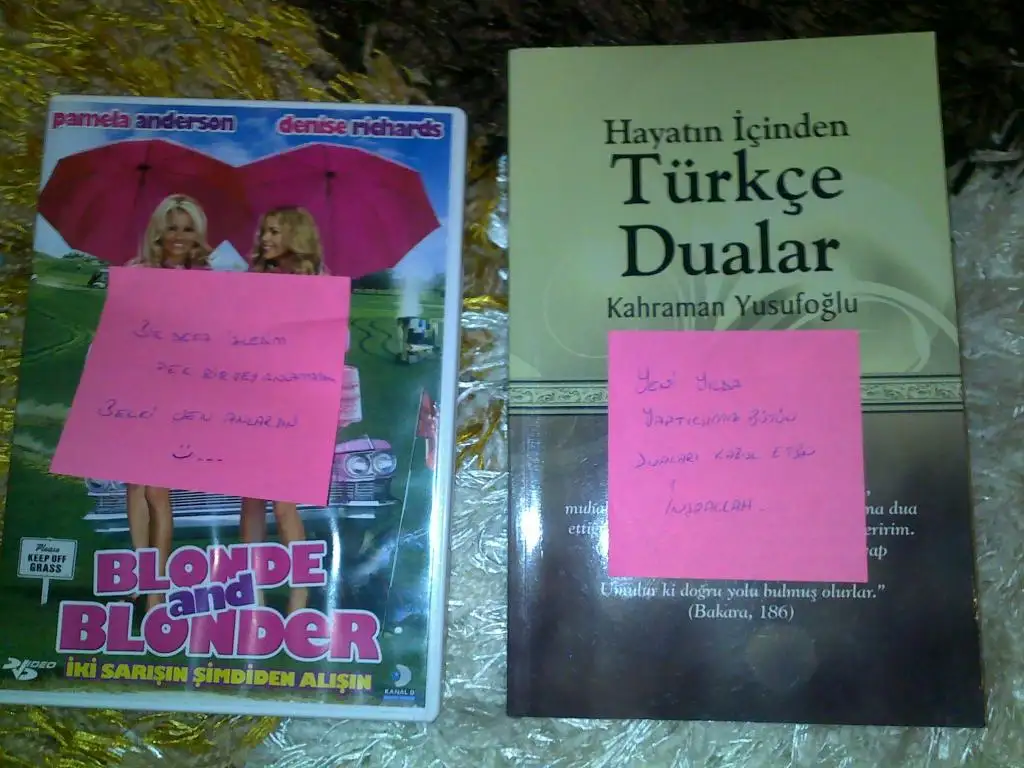 pamela anderson
denise richards
BİR DEFA İZLEDİM
PEK BİRŞEY ANLAMADIM
BELKİ SEN ANLARSIN
Please
KEEP OFF
GRASS
BLONDE
and
BLONDER
İKİ SARIŞIN ŞİMDİDEN ALIŞIN
DVD VIDEO
KANAL D
Hayatın İçinden
Türkçe
Dualar
Kahraman Yusufoğlu
YENİ YILDA
BÜTÜN
DUALARI KABUL ETSİN
İNŞALLAH
ma dua
Umulur ki doğru yolu bulmuş olurlar."
(Bakara, 186)